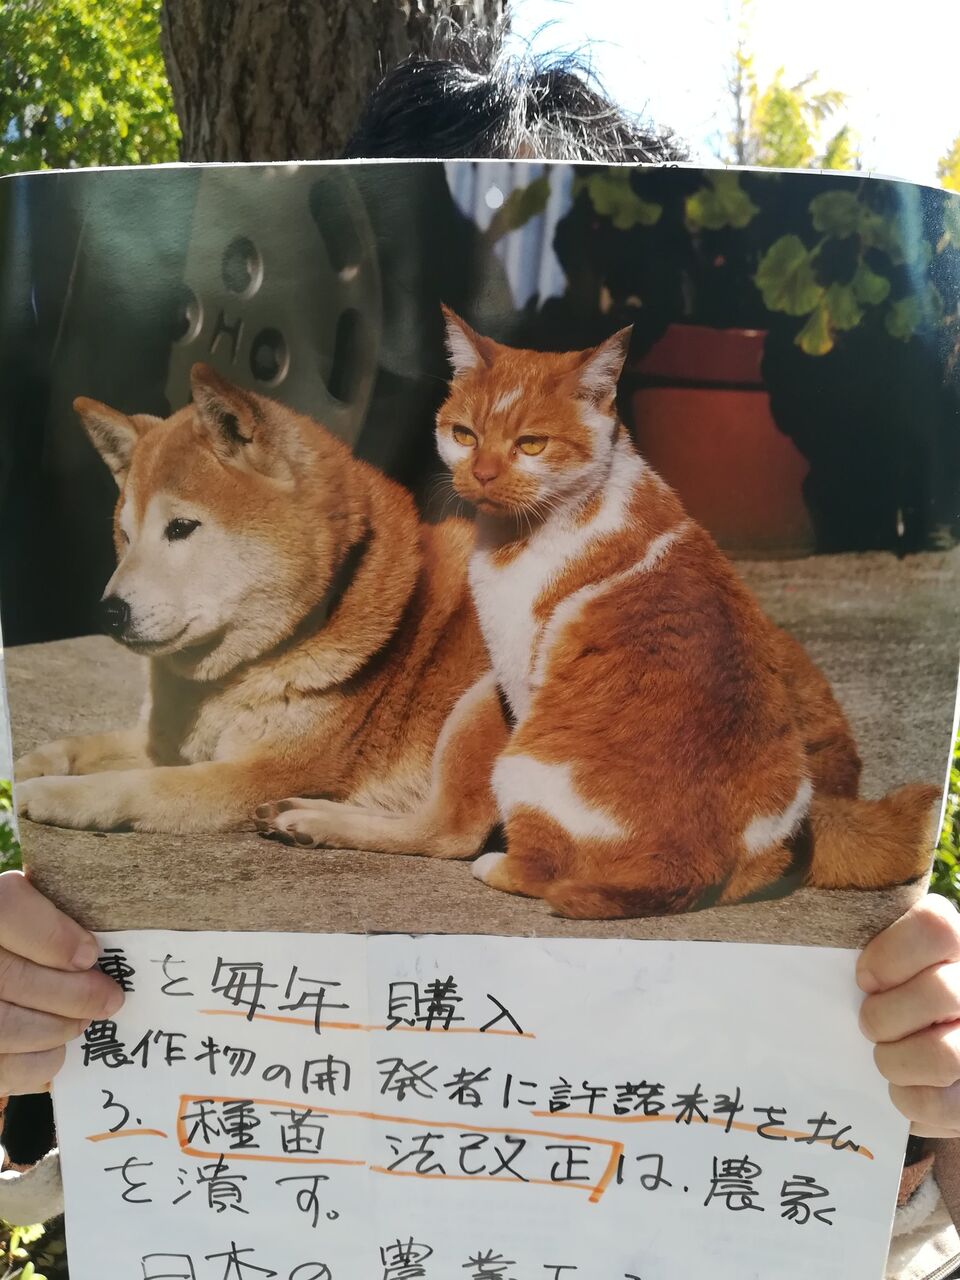 HO
種を毎年購入
農作物の開発者に許諾料を払
う.種苗法改正は.農家
を潰す。
日本の農業